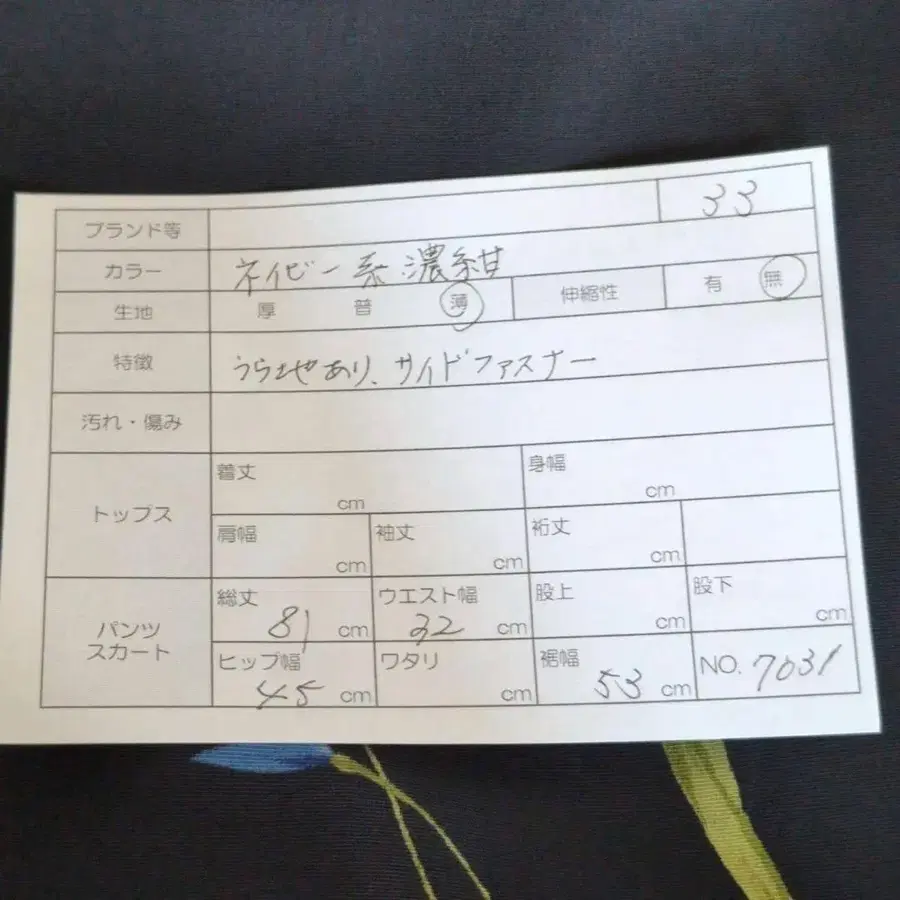 ブランド等 33
カラー ネイビー系 濃紺
生地 厚 普 薄 伸縮性 有 無
特徴 うら地あり、サイドファスナー
汚れ・傷み
トップス
着丈 cm 身幅 cm
肩幅 cm 袖丈 cm 裄丈 cm
パンツ
スカート
総丈 81 cm ウエスト幅 32 cm 股上 cm 股下 cm
ヒップ幅 45 cm ワタリ cm 裾幅 53 cm NO. 7031